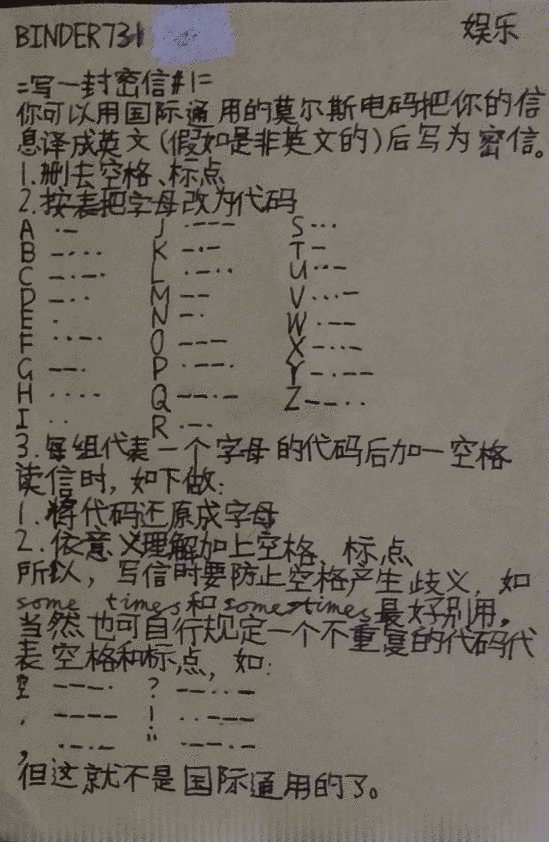 BINDER731 娱乐
=写一封密信#1=
你可以用国际通用的莫尔斯电码把你的信
息译成英文(假如是非英文的)后写为密信。
1.删去空格、标点
2.按表把字母改为代码
A ·— J ·——— S ···
B —··· K —·— T —
C —·—· L ·—·· U ··—
D —·· M —— V ···—
E · N —· W ·——
F ··—· O ——— X —··—
G ——· P ·——· Y —·——
H ···· Q ——·— Z ——··
I ·· R ·—·
3.每组代表一个字母的代码后加一空格
读信时,如下做:
1.将代码还原成字母
2.依意义理解加上空格、标点
所以,写信时要防止空格产生歧义,如
some times和sometimes最好别用。
当然也可自行规定一个不重复的代码代
表空格和标点,如:
空 ———· ?
· ———— !
, "
但这就不是国际通用的了。